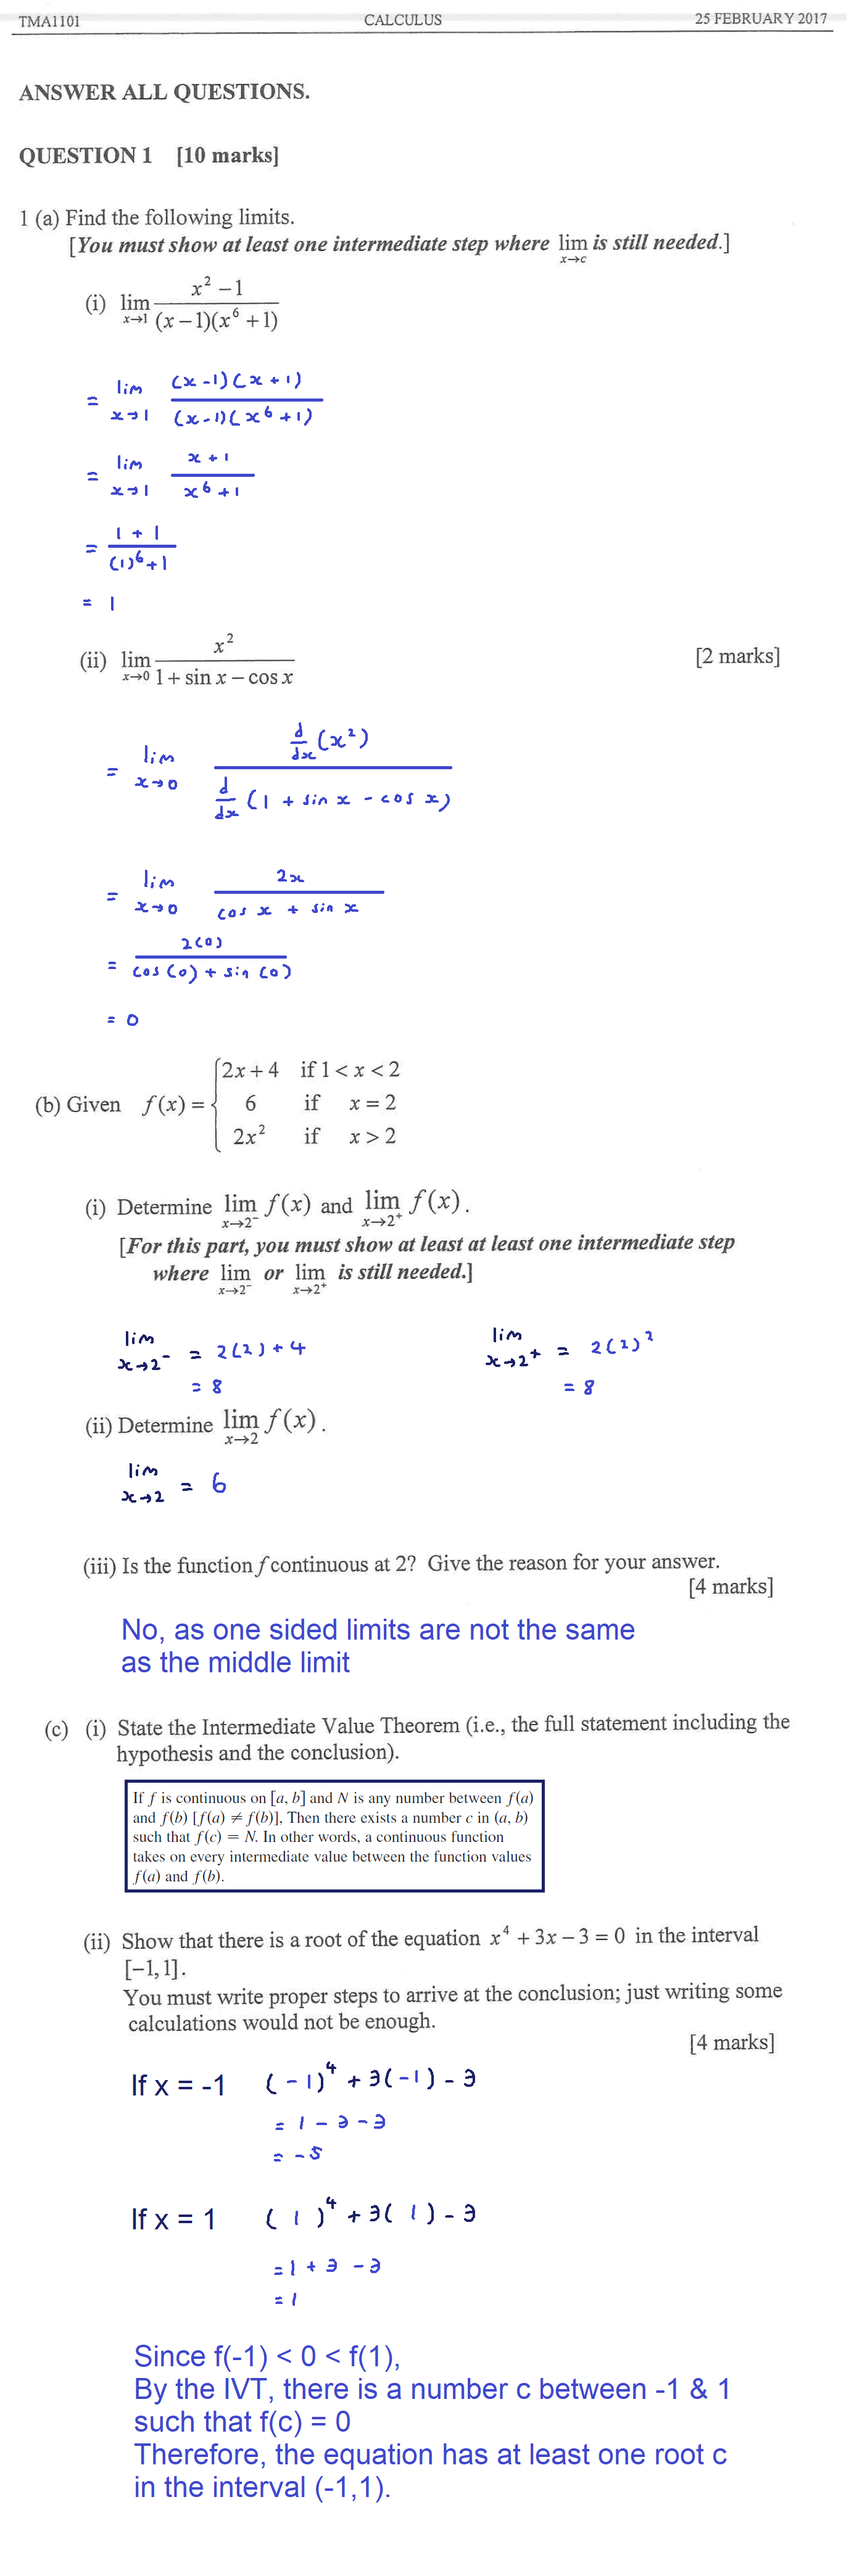 TMA1101 CALCULUS 25 FEBRUARY 2017
ANSWER ALL QUESTIONS.
QUESTION 1 [10 marks]
1 (a) Find the following limits.
[You must show at least one intermediate step where lim x→c is still needed.]
(i) lim x→1 (x² − 1)/((x − 1)(x⁶ + 1))
= lim x→1 ((x − 1)(x + 1))/((x − 1)(x⁶ + 1))
= lim x→1 (x + 1)/(x⁶ + 1)
= (1 + 1)/((1)⁶ + 1)
= 1
(ii) lim x→0 x²/(1 + sin x − cos x) [2 marks]
= lim x→0 (d/dx (x²))/(d/dx (1 + sin x − cos x))
= lim x→0 2x/(cos x + sin x)
= 2(0)/(cos(0) + sin(0))
= 0
(b) Given f(x) = { 2x + 4 if 1 < x < 2
6 if x = 2
2x² if x > 2
(i) Determine lim x→2⁻ f(x) and lim x→2⁺ f(x).
[For this part, you must show at least at least one intermediate step
where lim x→2⁻ or lim x→2⁺ is still needed.]
lim x→2⁻ = 2(2) + 4 lim x→2⁺ = 2(2)²
= 8 = 8
(ii) Determine lim x→2 f(x).
lim x→2 = 6
(iii) Is the function f continuous at 2? Give the reason for your answer.
[4 marks]
No, as one sided limits are not the same
as the middle limit
(c) (i) State the Intermediate Value Theorem (i.e., the full statement including the
hypothesis and the conclusion).
If f is continuous on [a, b] and N is any number between f(a)
and f(b) [f(a) ≠ f(b)], Then there exists a number c in (a, b)
such that f(c) = N. In other words, a continuous function
takes on every intermediate value between the function values
f(a) and f(b).
(ii) Show that there is a root of the equation x⁴ + 3x − 3 = 0 in the interval
[−1, 1].
You must write proper steps to arrive at the conclusion; just writing some
calculations would not be enough.
[4 marks]
If x = -1 (−1)⁴ + 3(−1) − 3
= 1 − 3 − 3
= −5
If x = 1 (1)⁴ + 3(1) − 3
= 1 + 3 − 3
= 1
Since f(-1) < 0 < f(1),
By the IVT, there is a number c between -1 & 1
such that f(c) = 0
Therefore, the equation has at least one root c
in the interval (-1,1).